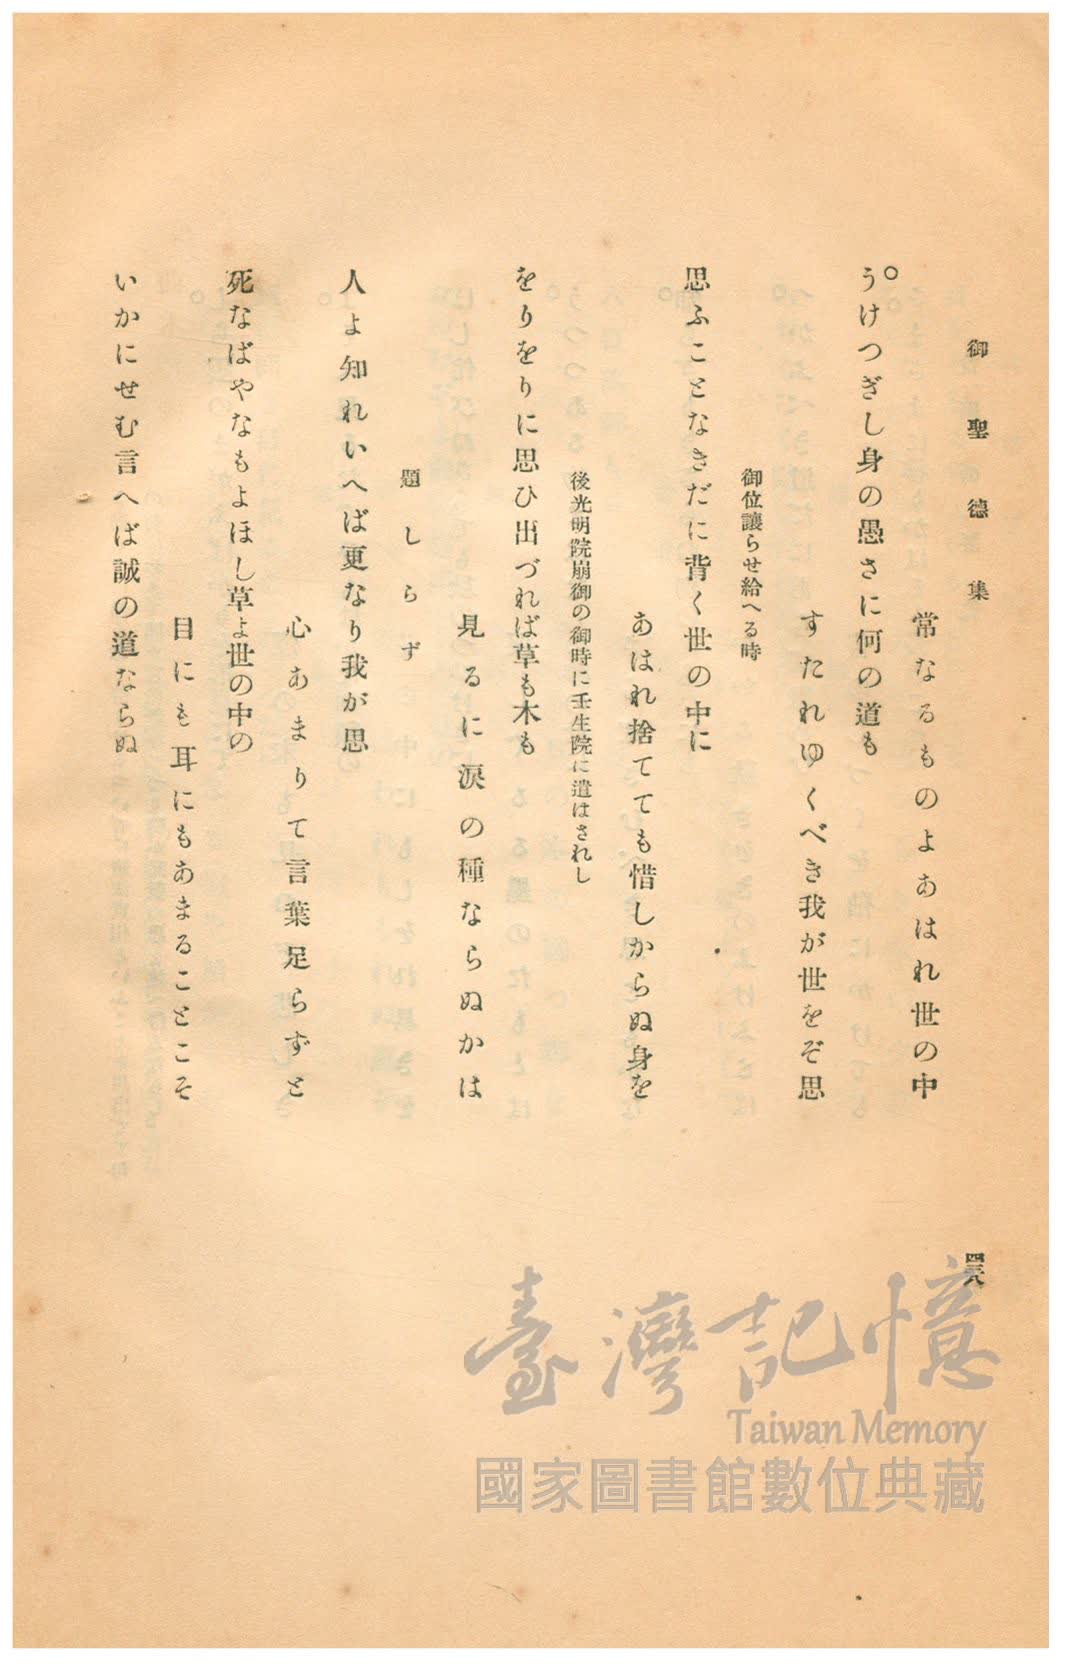 御聖德集
常なるものよあはれ世の中
○うけつぎし身の愚さに何の道も
すたれゆくべき我が世をぞ思
御位讓らせ給へる時
思ふことなきだに背く世の中に
あはれ捨てても惜しからぬ身を
後光明院崩御の御時に壬生院に遣はされし
をりをりに思ひ出づれば草も木も
見るに淚の種ならぬかは
題しらず
人よ知れいへば更なり我が思
心あまりて言葉足らずと
死なばやなもよほし草よ世の中の
目にも耳にもあまることとこそ
いかにせむ言へば誠の道ならぬ
臺灣記憶
Taiwan Memory
國家圖書館數位典藏